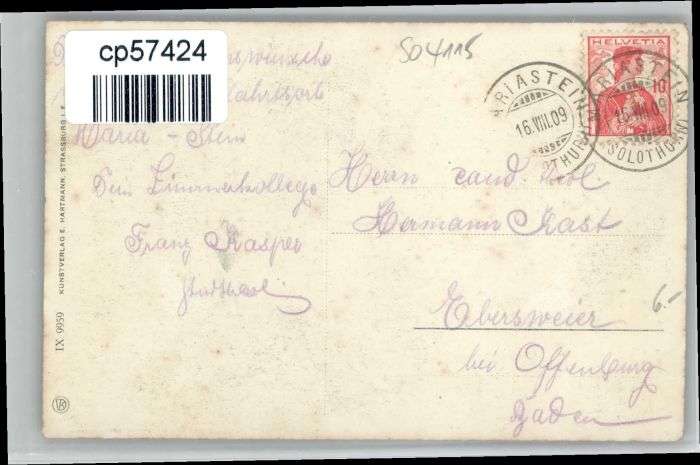 cp57424
SO4115
HELVETIA
10
MARIASTEIN
16.VIII.09
(SOLOTHURN)
MARIASTEIN
16.VIII.09
(SOLOTHURN)
Maria-Stein
Dein Zimmerkollege
Franz Kasper
stud. theol.
Herrn cand. theol.
Hermann Kast
Ebersweier
bei Offenburg
Baden
6.-
KUNSTVERLAG E. HARTMANN, STRASSBURG I. E.
IX 9959